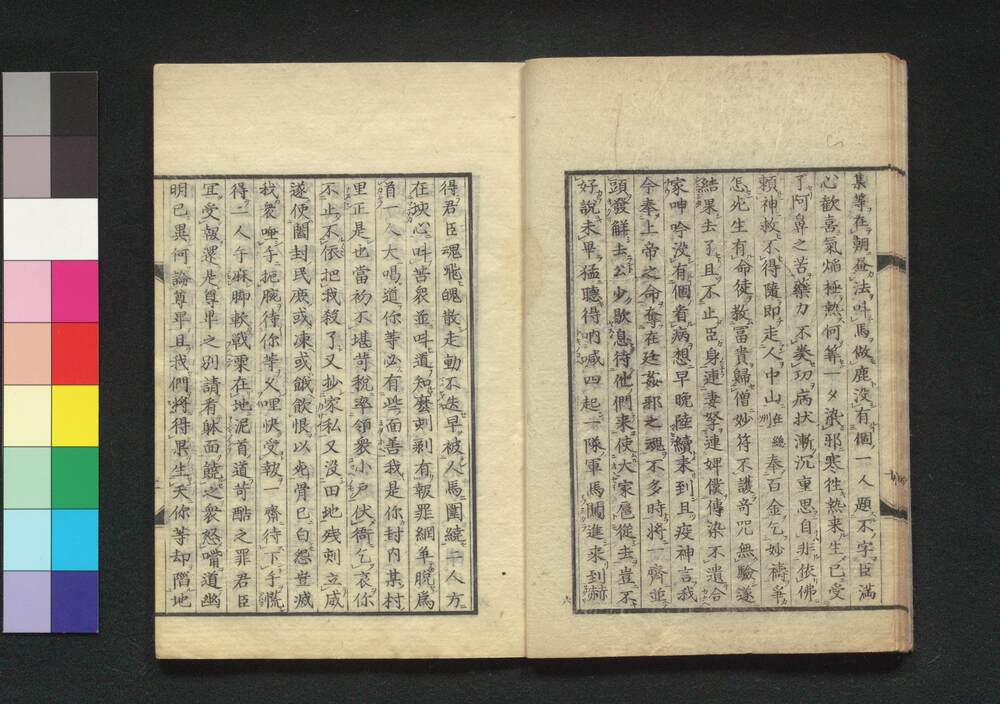 集等在朝並法叫馬做鹿沒有個一人題不字臣滿
心歡喜氣焰極熱何等一夕滾邪寒徃熱来生已受
了阿鼻之苦藥力不奏功病状漸沉重思自非依佛
頼神救不得隨即走人中山在雞州奉百金乞妙禱爭
怎死生有命徒教冨貴歸僧妙符不護奇咒無驗遂
結果去了且不止臣身連妻孥連婢僕傳染不遺合
家呻吟没有個看病想早晚陸續来到且疫神言我
今奉上帝之命奪在廷姦邪之魂不多時將一齊並
頭發解去公少歇息待他們来使大家扈従去豈不
好說未畢猛聽得吶喊四起一隊軍馬闖進来到赫
得君臣魂飛魄散走動不迭早被人馬圍繞二人方
在坱心叫苦衆並叫道知麽剥剥有報罪網単脱爲
首一人大喝道你等必有些面善我是你封内某村
里正是也當初不堪苛税率領衆小戸伏衙乞哀你
不止不依把我殺了又抄家私又没田地残刻立威
遂使闔封民庶或凍或餓飲恨以死骨已白怨豈滅
我衆唾手扼腕待你等久哩快受報一齊待下手慌
得二人手麻脚軟戰栗在地泥首道苛酷之罪君臣
冝受報還是尊卑之別請看躰面饒之衆怒嘴道幽
明已異何論尊卑且我們將得果生天你等却墮地